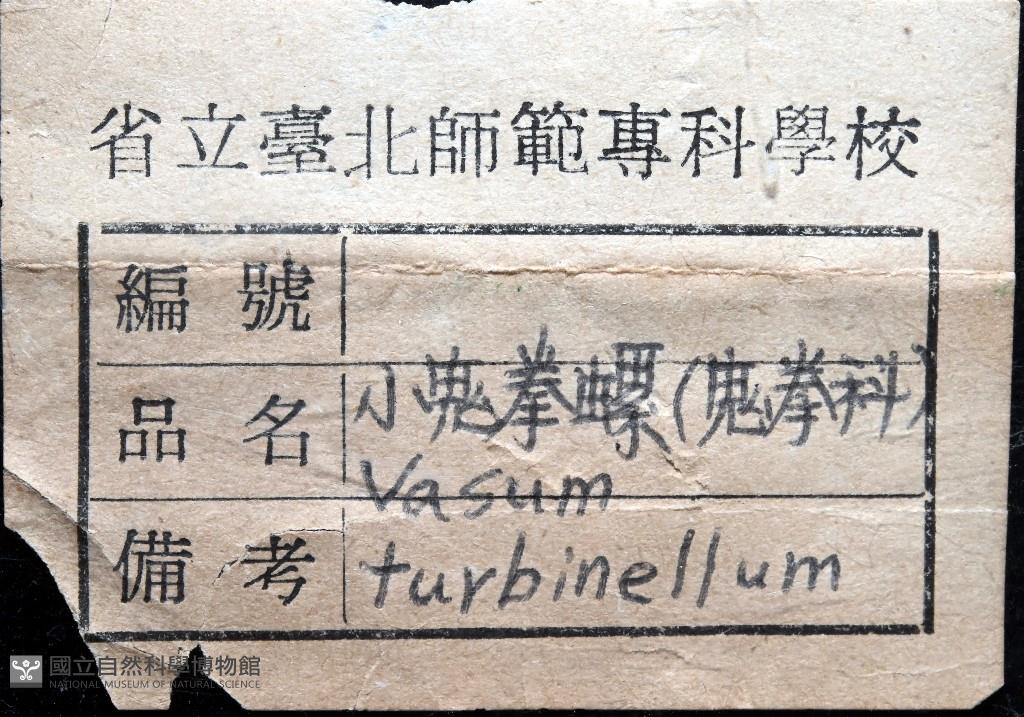 省立臺北師範專科學校
編號
品名 小鬼拳螺(鬼拳科)
Vasum
備考 turbinellum
國立自然科學博物館
NATIONAL MUSEUM OF NATURAL SCIENCE